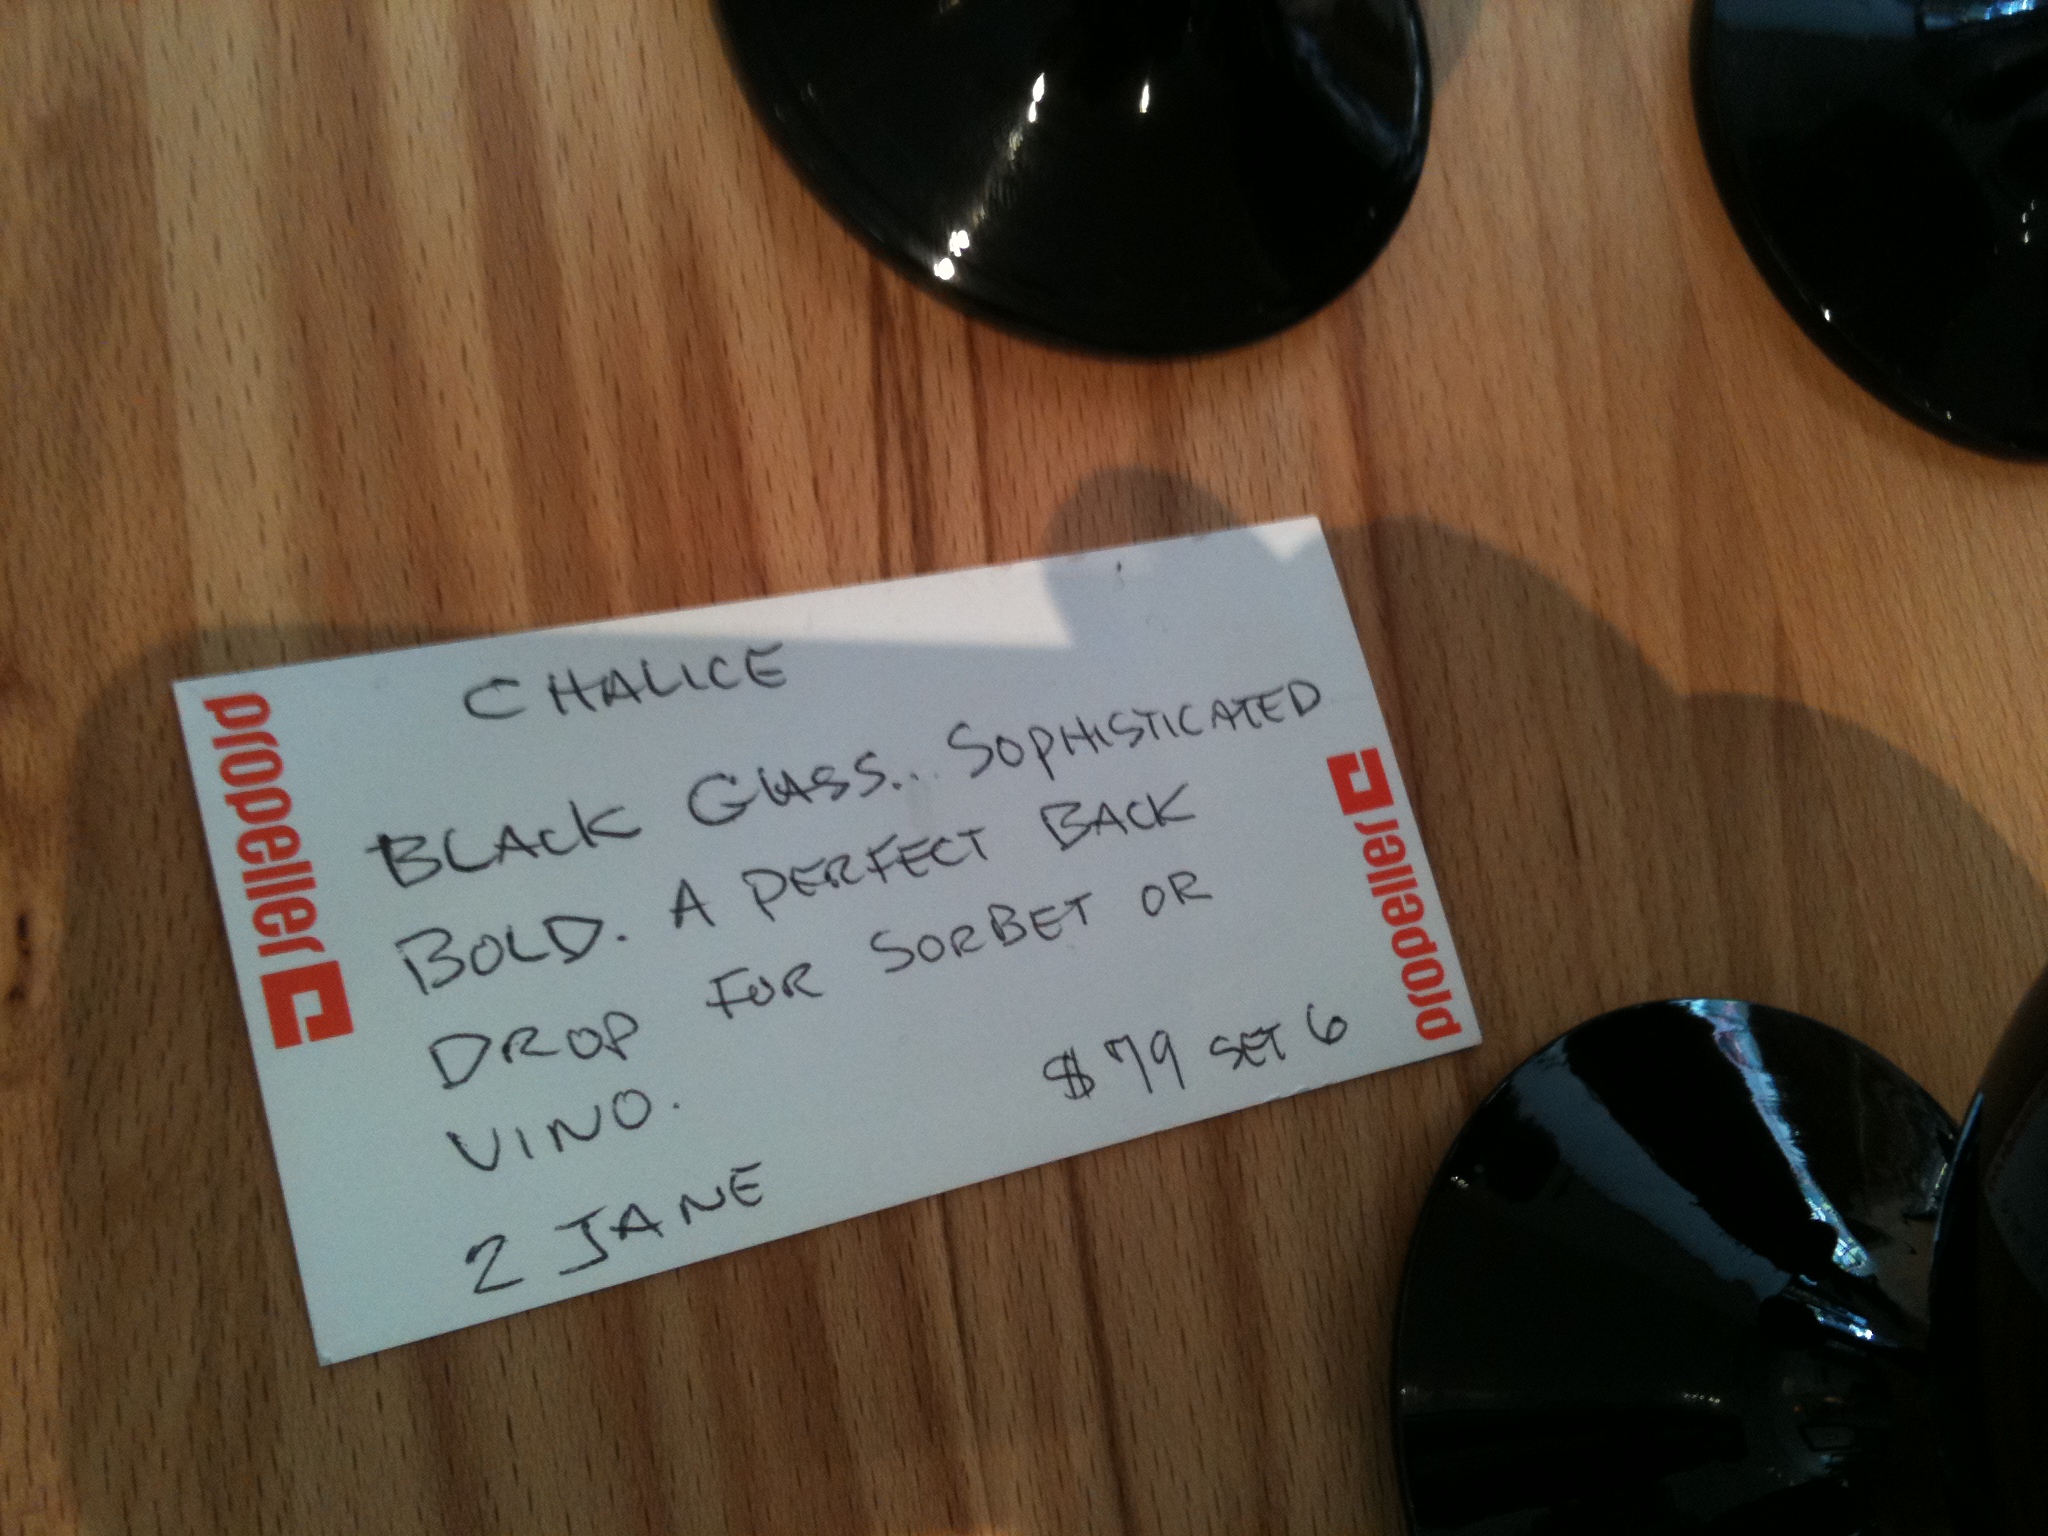 propeller
CHALICE
BLACK GLASS... SOPHISTICATED
BOLD. A PERFECT BACK
DROP FOR SORBET OR
VINO.
$79 SET 6
2 JANE
propeller